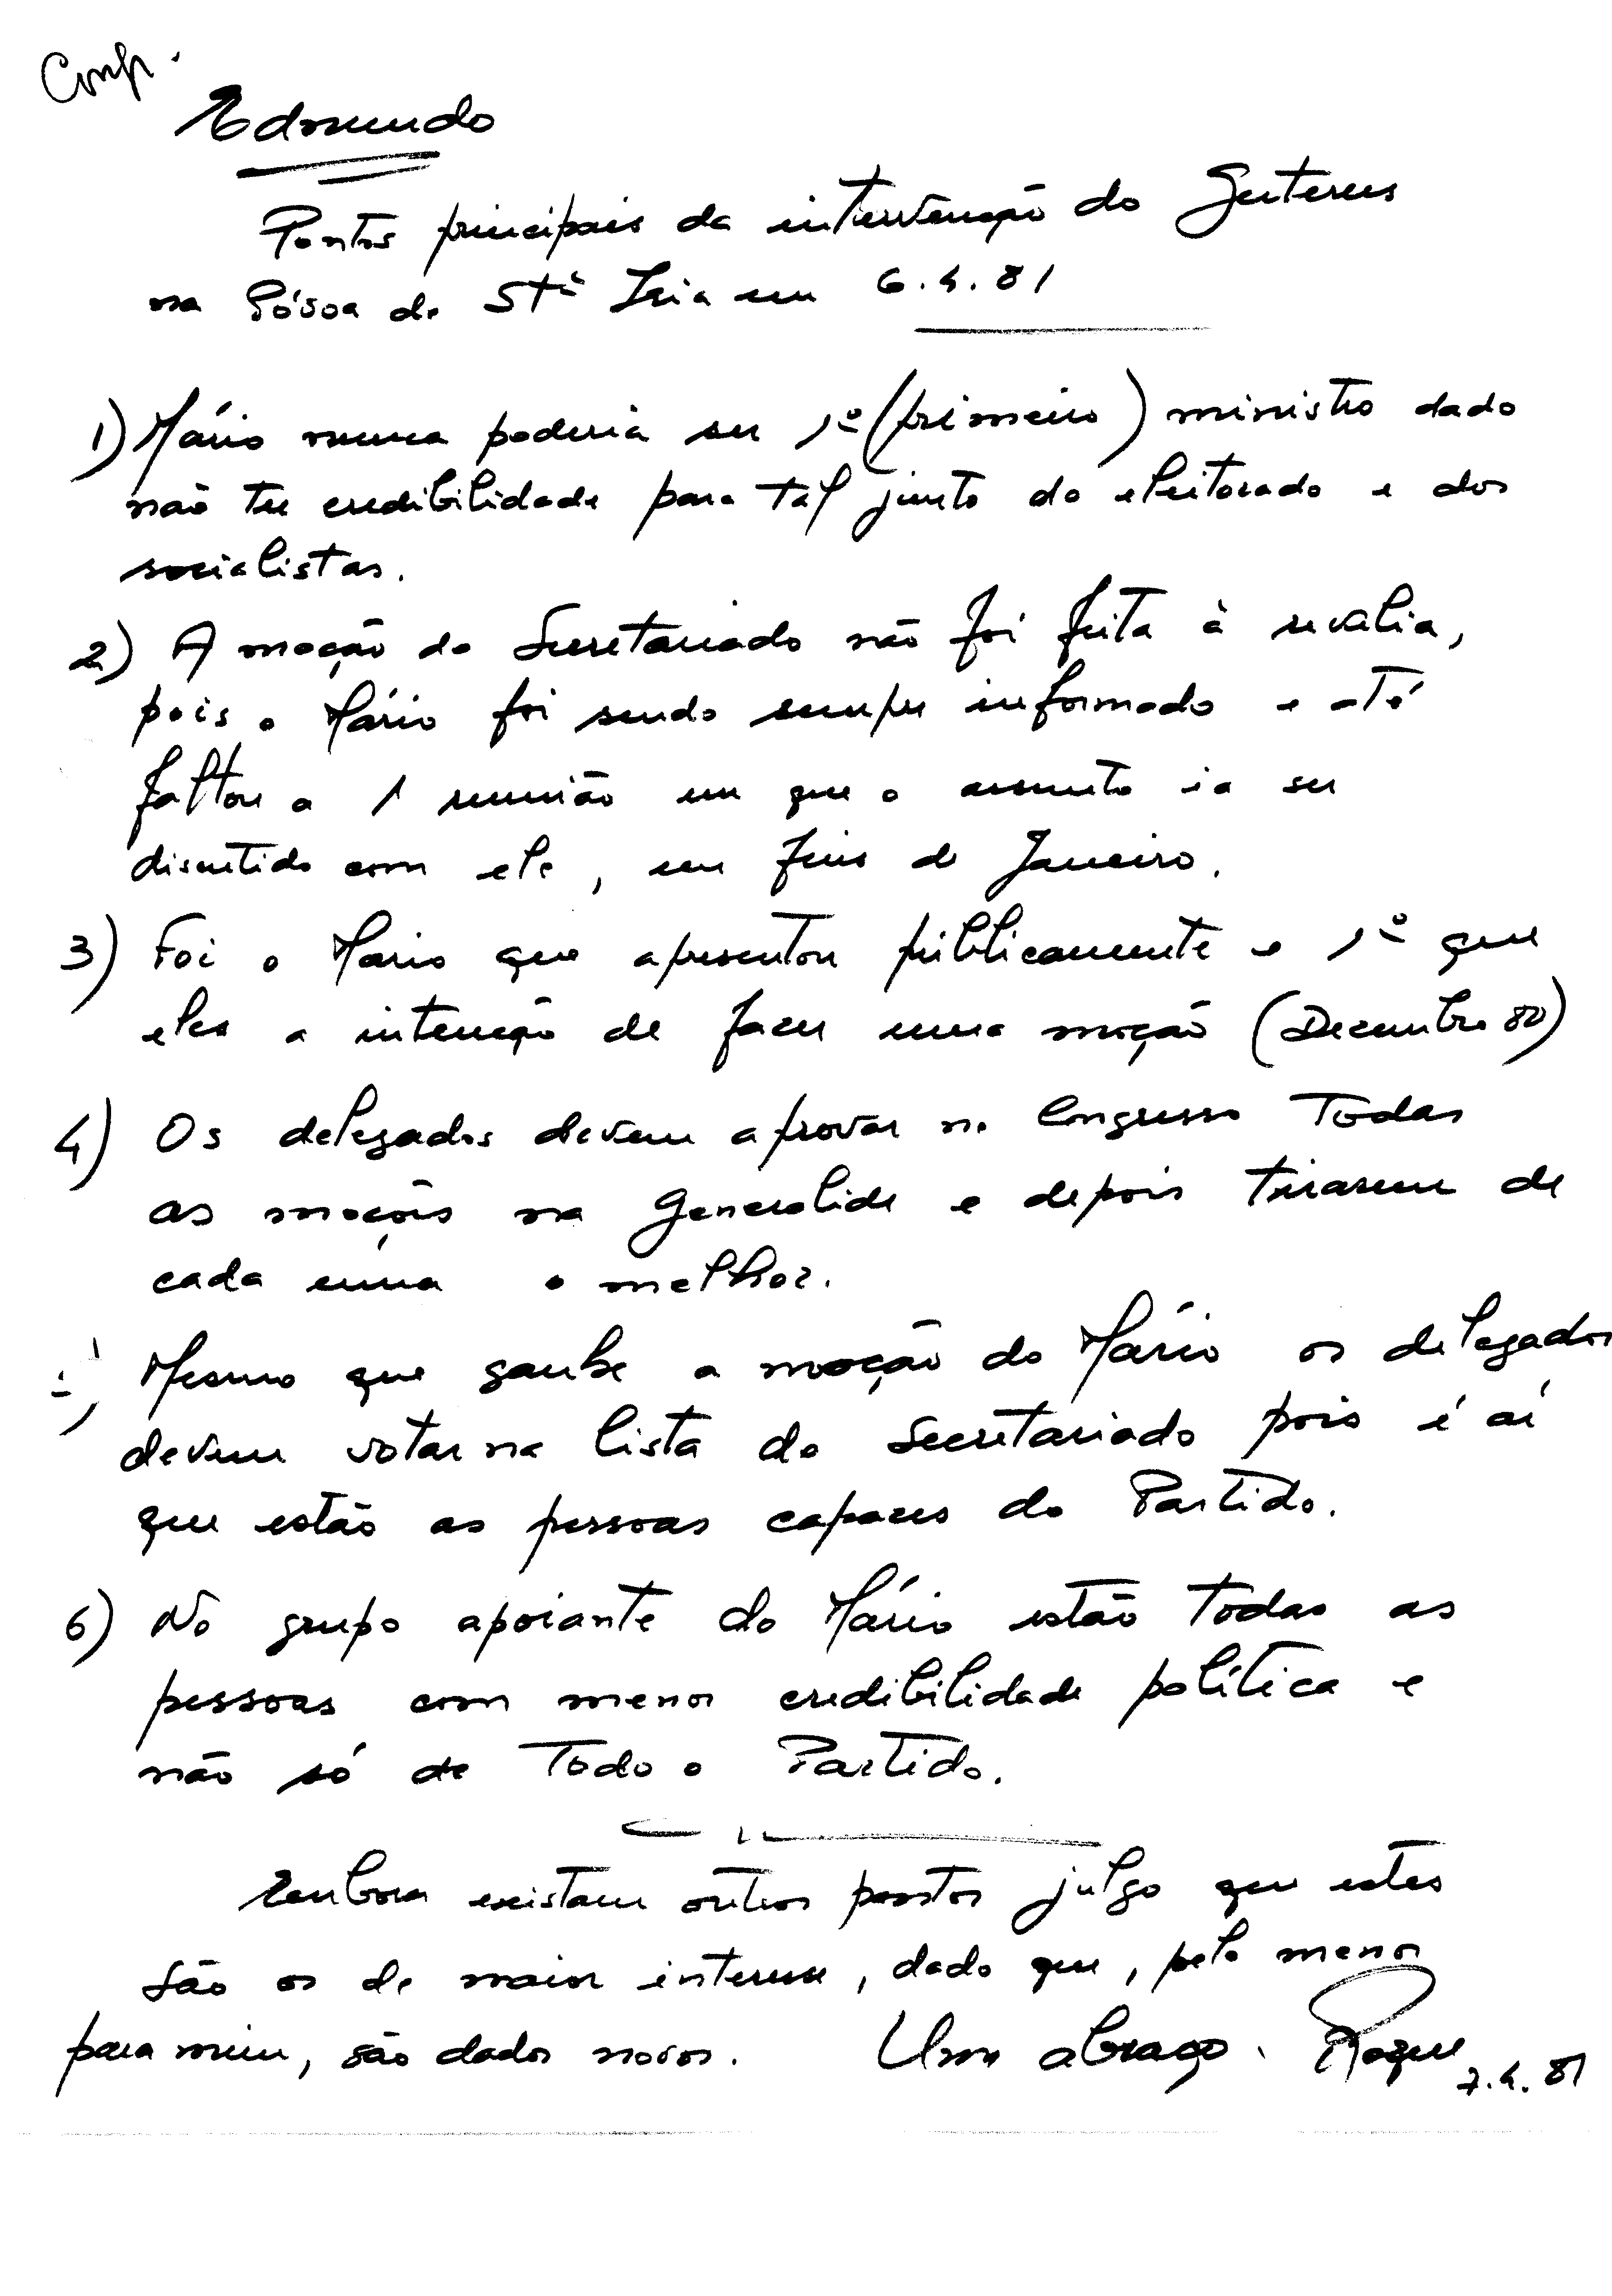 Conf.
Edmundo
Pontos principais da intervenção do Guterres
na Póvoa de Stª Iria em 6.4.81
1) Mário nunca poderia ser 1º (primeiro) ministro dado
não ter credibilidade para tal junto do eleitorado e dos
socialistas.
2) A moção do Secretariado não foi feita à revelia,
pois o Mário foi sendo sempre informado e até
faltou a 1 reunião em que o assunto ia ser
discutido com ele, em fins de Janeiro.
3) Foi o Mário que apresentou públicamente e 1º que
eles a intenção de fazer uma moção (Dezembro 80)
4) Os delegados devem aprovar no Congresso Todas
as moções na Generalide e depois tirarem de
cada uma o melhor.
Mesmo que ganhe a moção do Mário os delegados
devem votar na lista do Secretariado pois é aí
que estão as pessoas capazes do Partido.
6) No grupo apoiante do Mário estão todas as
pessoas com menor credibilidade política e
não só de Todo o Partido.
Embora existam outros pontos julgo que estes
são os de maior interesse, dado que, pelo menos
para mim, são dados novos. Um abraço. Roque
7.4.81